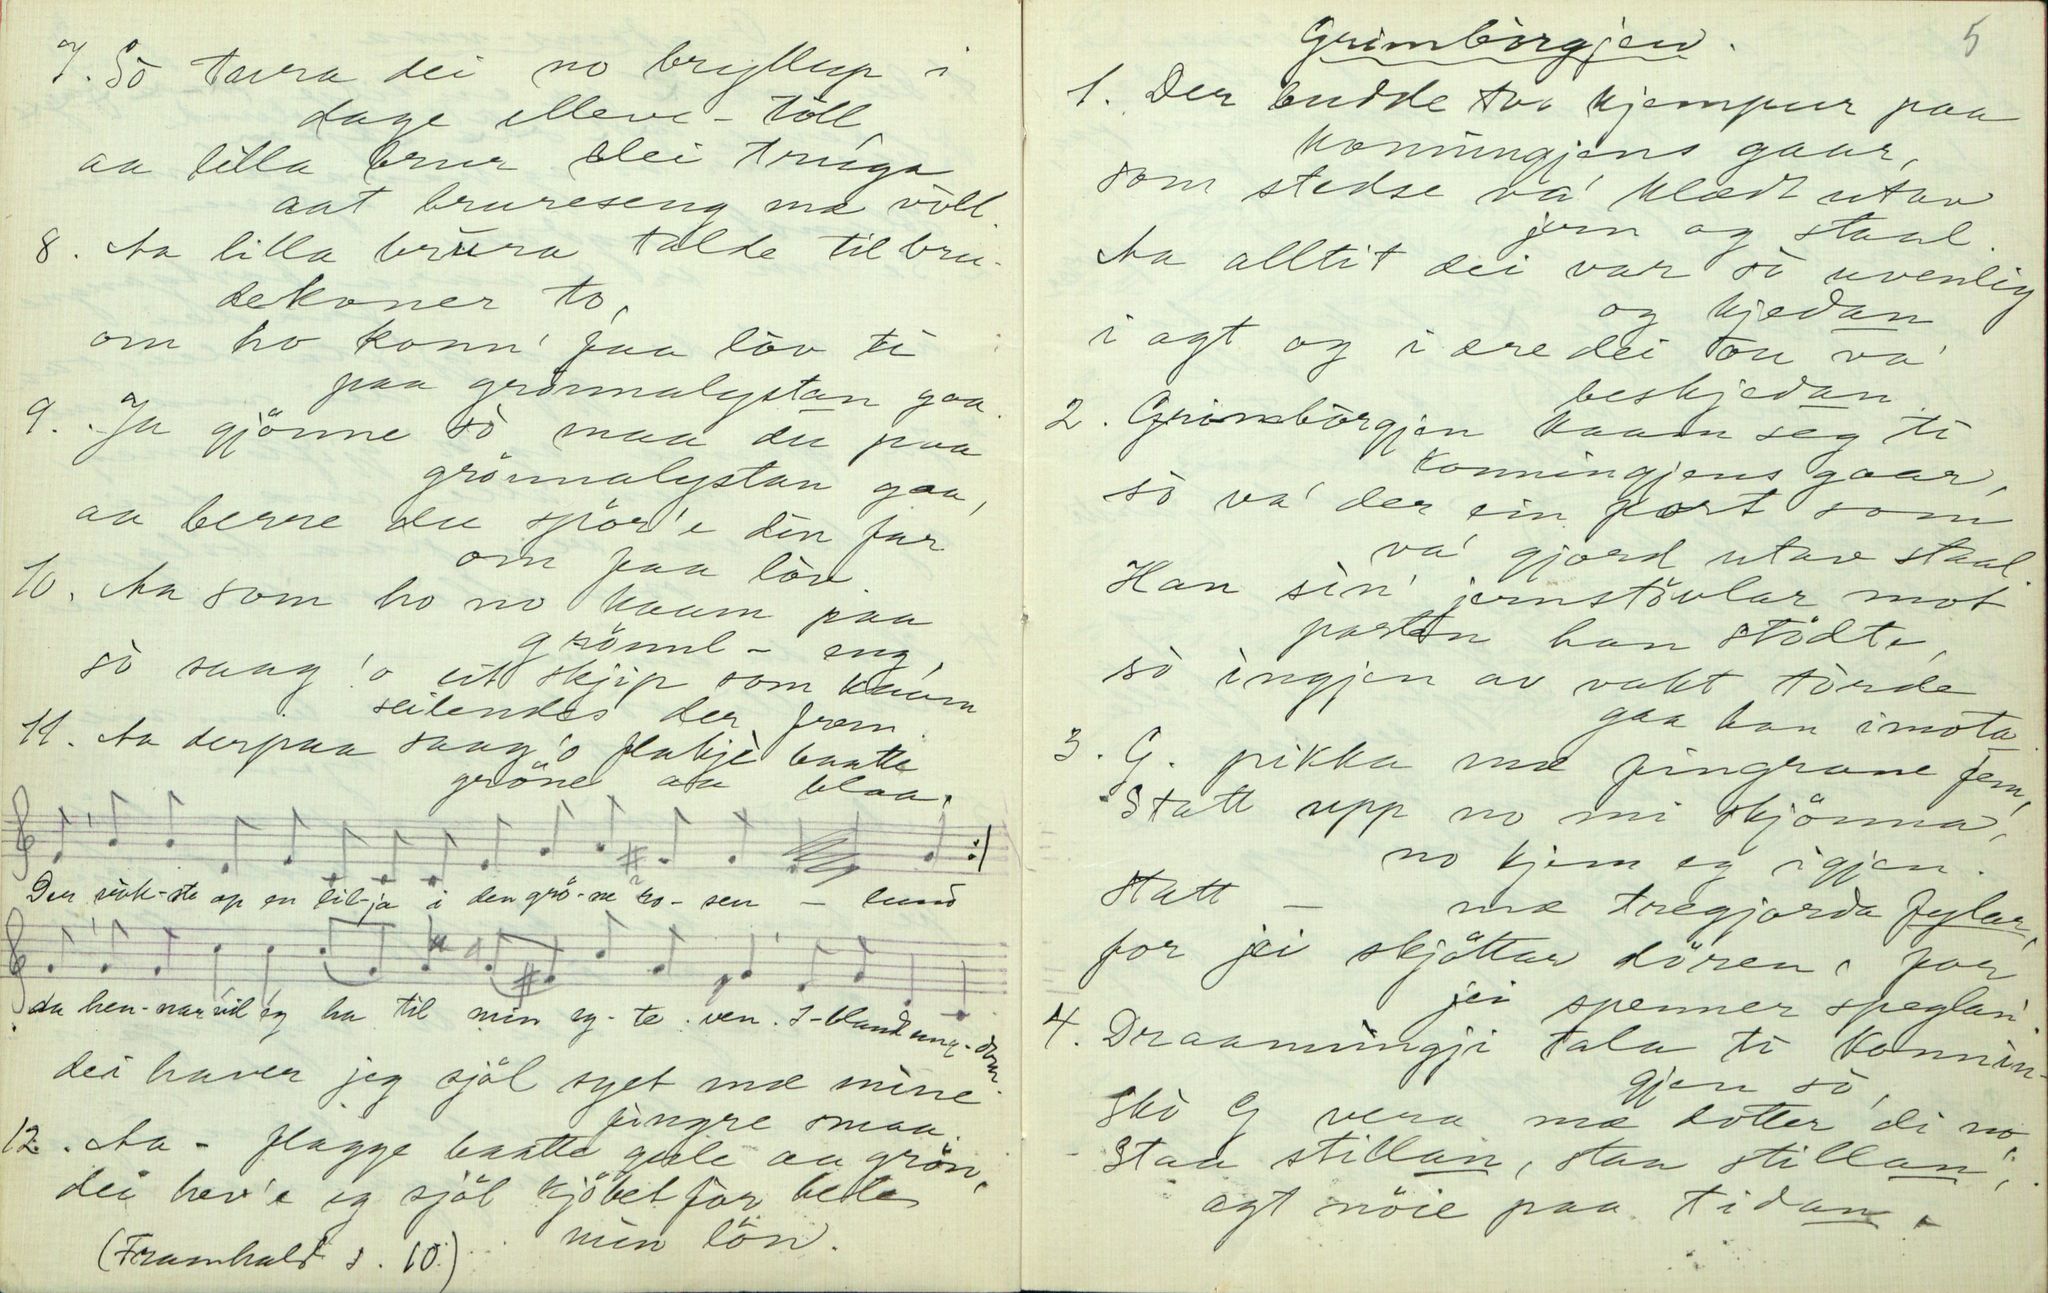 7. Sò tura dei no bryllup i
dage elleve - töll
aa lilla brur dei truga
aat brureseng mæ völl.
8. Aa lilla brura talde til bru-
dekoner to,
om ho konn' faa löv ti
paa grönnalystan gaa.
9. Ja gjönne sò maa du paa
grönnalystan gaa,
aa berre du spör'e din far
om faa löv.
10. Aa som ho no kaam paa
grönnl - eng,
sò saag 'o eit skjip som kaam
seilendes der frem.
11. Aa derpaa saag'o flakje baatte
gröne aa blaa,
Der vòk-ste op en lil-ja i den grö-ne ro-sen - lund
da hen-nar vil eg ha til min eg-te ven. I-bland ung-dom.
dei haver jeg sjöl syet mæ mine
fingre smaa.
12. Aa - flagge baatte gule aa grön,
dei hev'e eg sjöl kjöbet for bete
min lön.
(Framhald s. 10.)
5
Grimbòrgjen.
1. Der budde tvo kjempur paa
konningjens gaar,
som stedse va' klædt utav
jern og staal.
Aa alltit dei var sò uvenlig
og kjedan
i agt og i ære dei tou va'
beskjedan.
2. Grimbòrgjen kaam seg ti
konningjens gaar,
sò va' der ein port som
va' gjord utav staal.
Han sin' jernstövlar mot
porten han stödte,
sò ingjen av vakt tòrde
gaa han imota.
3. G. pikka mæ fingrane fem,
Statt upp no mi skjönna,
no kjem eg igjen.
Statt - mæ tregjorda fylar,
for jei skjöttar dören, for
jei spenner speglan'.
4. Draamningji tala ti konnin-
gjen sò,
Skò G vera mæ dotter di no
- Staa stillan, staa stillan,
agt nöie paa tidan.